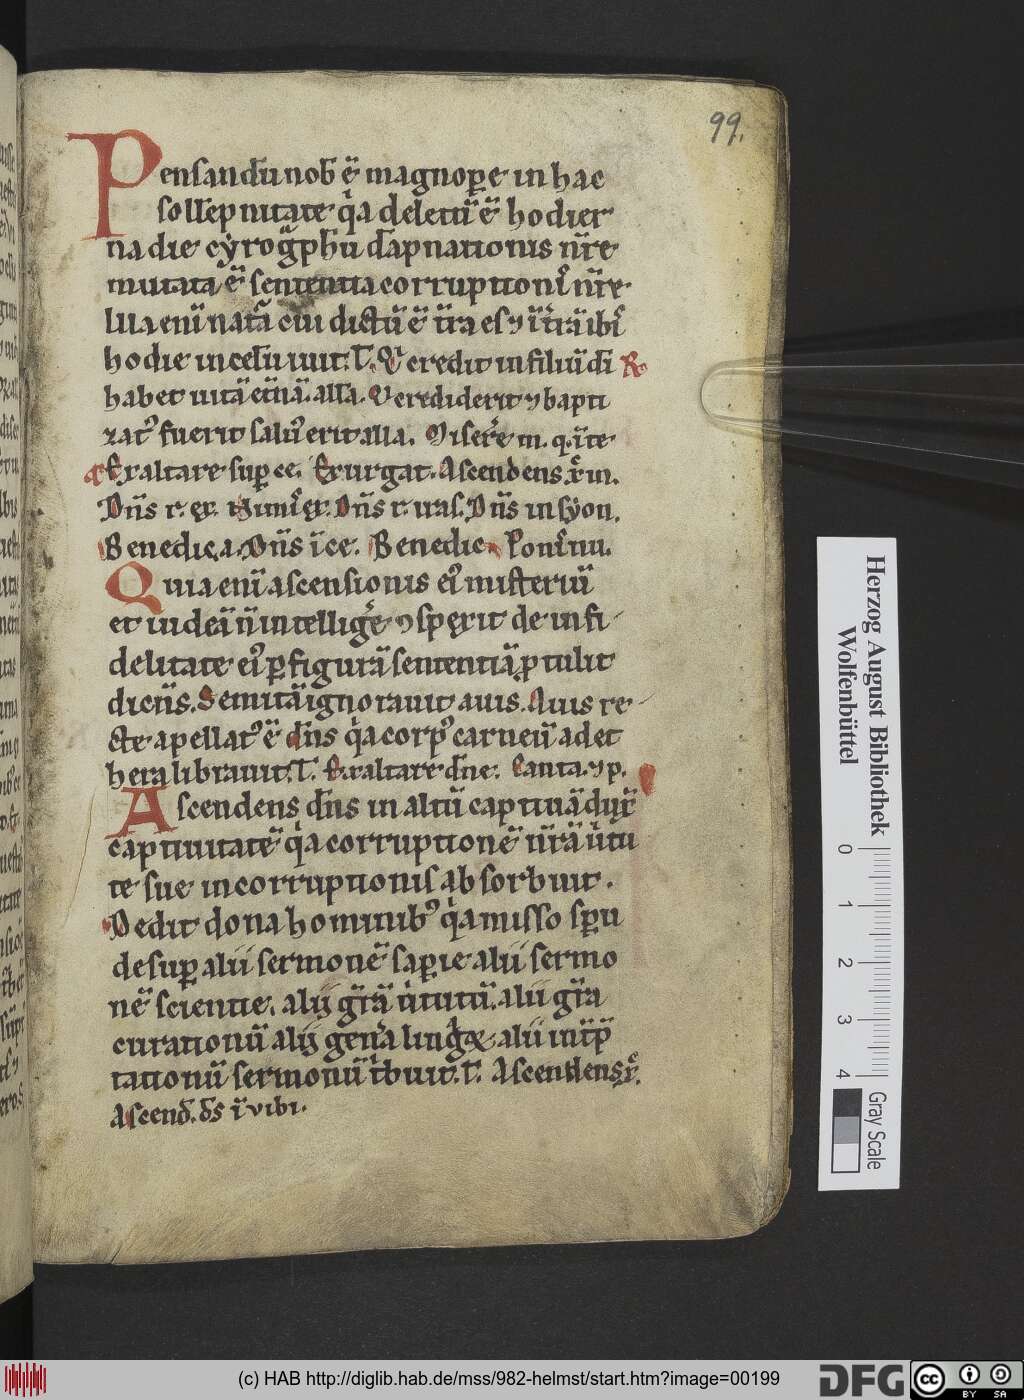 99.
Pensandū nob̄ ē magnop̱e in hac
sollēpnitate qͥa deletū ē hodier
na die cyrogᷓphū dāpnationis nr̄e
mutata ē sententia corruptioniˢ nr̄e
Illa enī natᷓa cui dictū ē t̄ra es ⁊ ī t̄rā ibiˢ
hodie in celū iuit. T. Qͥ credit in filiū dī R
habet uitā et̄nā. alla. Q crediderit ⁊ bapti
zatꝰ fuerit saluꝰ erit alla. Miserere m. q. īte
Exaltare sup̱ ce. Exurgat. Ascendens xp̄c in.
Dn̄s r. ex. Dn̄s r. iras. Dn̄s in syon.
Benedic. a. Dn̄s ī ce. Benedic
Quia enī ascensionis eiꝰ misteriū
et iudeā ñ intelligere ꝯspexit de infi
delitate eiꝰ p̱ figurā sententiā ꝓtulit
dicēns. Semitā ignorauit auis. Auis re
cte apellatꝰ ē dn̄s qͥa corpꝰ carneū ad et
hera librauit. T. Exaltare dn̄e. Canta. ⁊ p.
Ascendens dn̄s in altū captiuā dux̄
captiuitatē qͥa corruptionē nr̄ā uͥtu
te sue incorruptionis absorbuit.
Dedit dona hominibꝰ qͥa misso sp̄u
desup̱ alii sermonē sap̱ie alii sermo
nē scientie. alij gr̄ā uͥtutū. alii gr̄a
curationū alij gen̄a lingᷓꝝ alii int̄p̄
tationū sermonū tͥbuit. T. Ascendens xp̄c.
Ascend. ds̄ ī vibi.
Herzog August Bibliothek
Wolfenbüttel
0 1 2 3 4
Gray Scale
(c) HAB http://diglib.hab.de/mss/982-helmst/start.htm?image=00199
DFG
cc BY SA